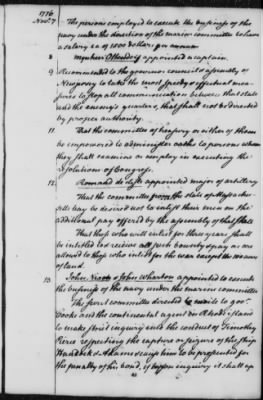 1776
Nov. 7
The persons employed to execute the business of the
navy under the direction of the marine committee to have
a salary of 1000 dollars per annum
8 appointed a captain.
9 Recommended to the governor council & assembly of
New jersey to take the most speedy & effectual mea-
sures to stop all communication between that state
and the enemy's quarters, that shall not be directed
by proper authority.
11 That the committee of treasury or either of them
be impowered to administer oaths to persons whom
they shall examine or employ in executing the
resolutions of Congress.
12. Romand de Lisle appointed major of artillery
That the committee from the state of Massachu-
setts bay be desired not to enlist their men on the
additional pay offered by the assembly of that state
That those who will enlist for three years shall
be intitled to & receive all such bounty & pay as are
allowed to those who inlist for the war except the 100 acres
of land.
13. John Nixon & John Wharton appointed to execute
the business of the navy under the marine committee
The secret committee directed to write to gov.
Cooke and the continental agent in Rhode island
to make strict enquiry into the conduct of Timothy
Pierce respecting the capture or seizure of the ship
Hancock & Adams & cause him to be prosecuted for
the penalty of his bond, if upon enquiry it shall ap